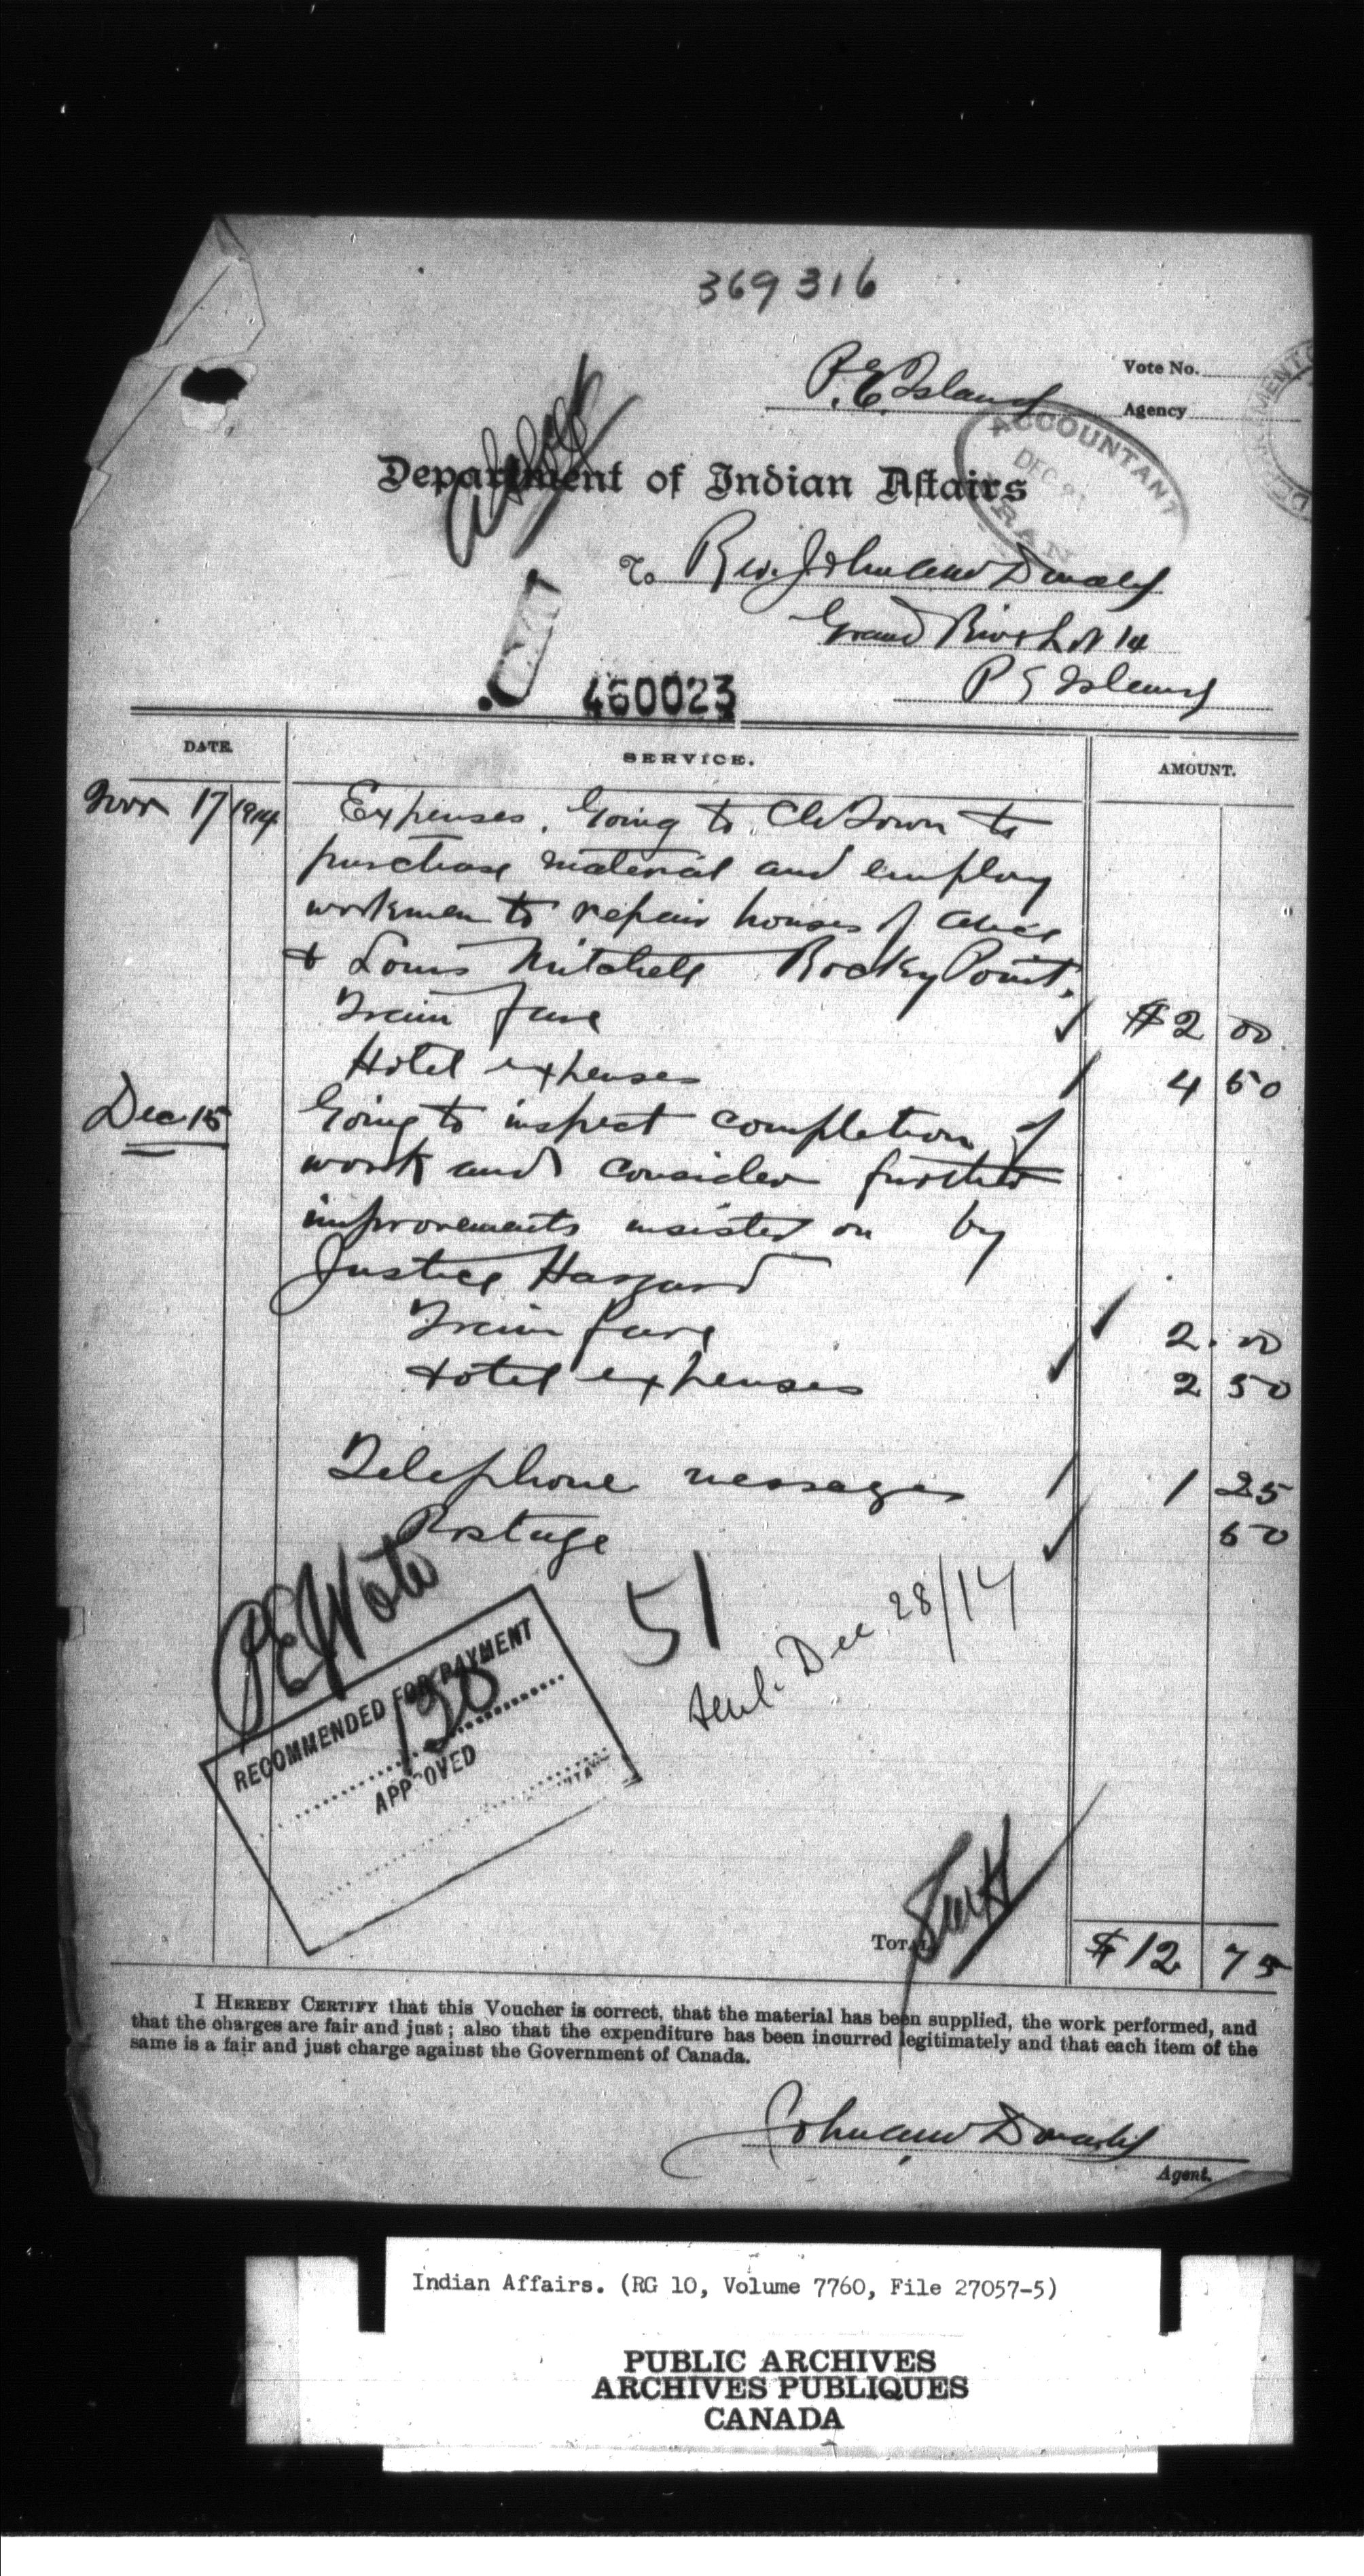 369316
P.E. Island
Vote No.
Agency
ACCOUNTANT
DEC
Department of Indian Affairs
To Rev. John A. McDonald
Grand River Lot 14
P E Island
460023
DATE. SERVICE. AMOUNT.
Nov 17 1914 Expenses. Going to ChTown to
purchase material and employ
workmen to repair houses of
& Louis Mitchell Rocky Point.
Train fare $2 00
Hotel expenses 4 50
Dec 15 Going to inspect completion of
work and consider further
improvements insisted on by
Justice Haszard
Train fare 2.00
Hotel expenses 2 50
Telephone messages 1 25
Postage 50
PEI Vote
51
Dec 28/14
RECOMMENDED FOR PAYMENT
130
APPROVED
TOTAL $12 75
I HEREBY CERTIFY that this Voucher is correct, that the material has been supplied, the work performed, and
that the charges are fair and just; also that the expenditure has been incurred legitimately and that each item of the
same is a fair and just charge against the Government of Canada.
John A. McDonald
Agent.
Indian Affairs. (RG 10, Volume 7760, File 27057-5)
PUBLIC ARCHIVES
ARCHIVES PUBLIQUES
CANADA